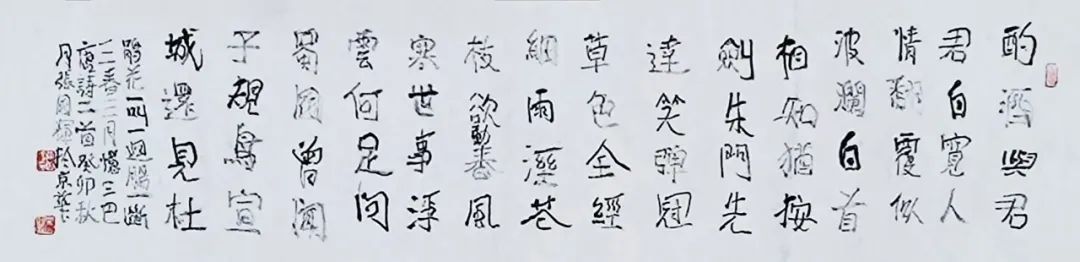 酌酒與君
君自寬人
情翻覆似
波瀾白首
相知猶按
劍朱門先
達笑彈冠
草色全經
細雨溼花
枝欲動春風
寒世事浮
雲何足問
蜀國曾聞
子規鳥宣
城還見杜
鵑花一叫一迴腸一斷
三春三月憶三巴
唐詩二首癸卯秋
月張國輝於京華